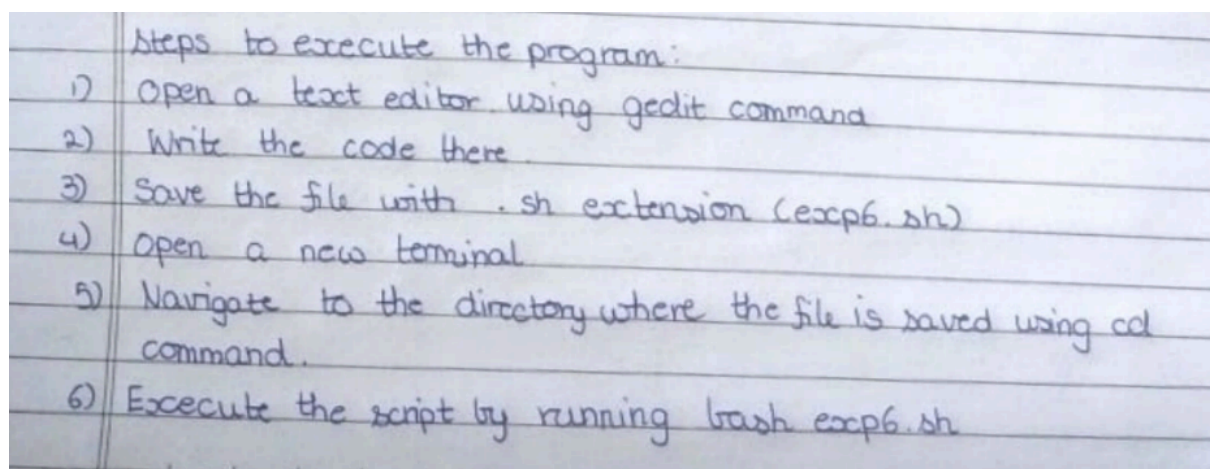 steps to execute the program:
1) Open a text editor using gedit command
2) Write the code there.
3) Save the file with .sh extension (exp6.sh)
4) Open a new terminal
5) Navigate to the directory where the file is saved using cd
command.
6) Excecute the script by running bash exp6.sh